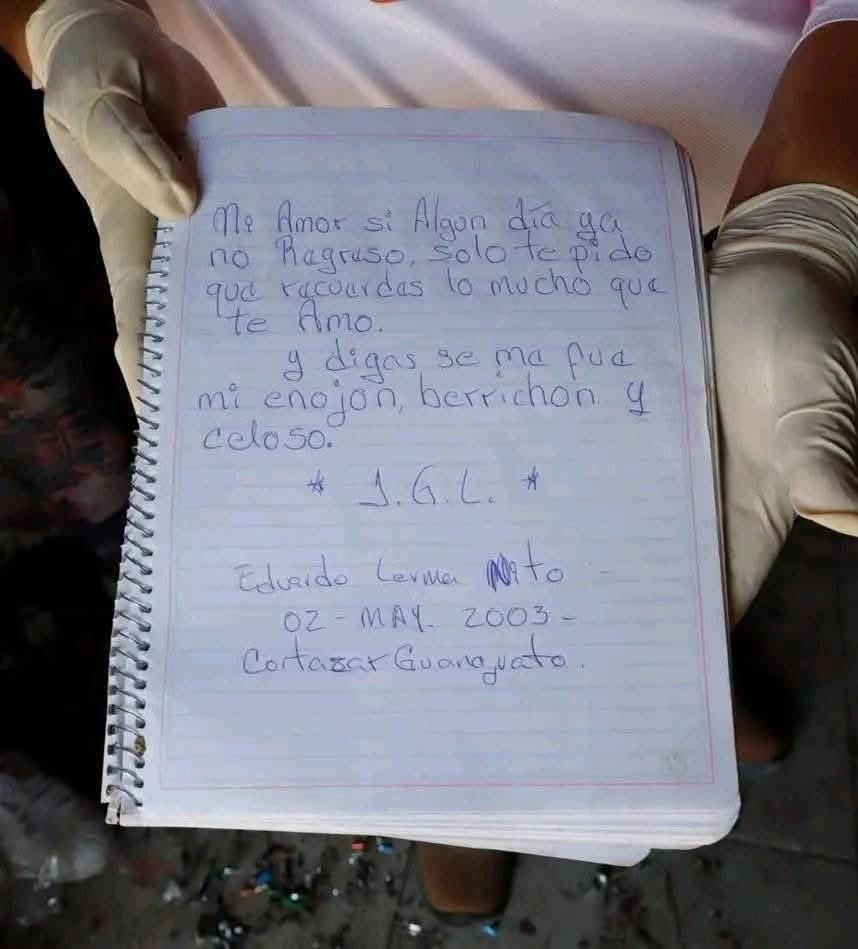 Mi Amor si Algun día ya
no Ragraso, solo te pido
que racuerdas lo mucho que
te Amo.
y digas se me fue
mi enojon, berrichon y
celoso.
* J.G.L. *
Eduardo Lerma Nito
02-MAY. 2003-
Cortazar Guanajuato.